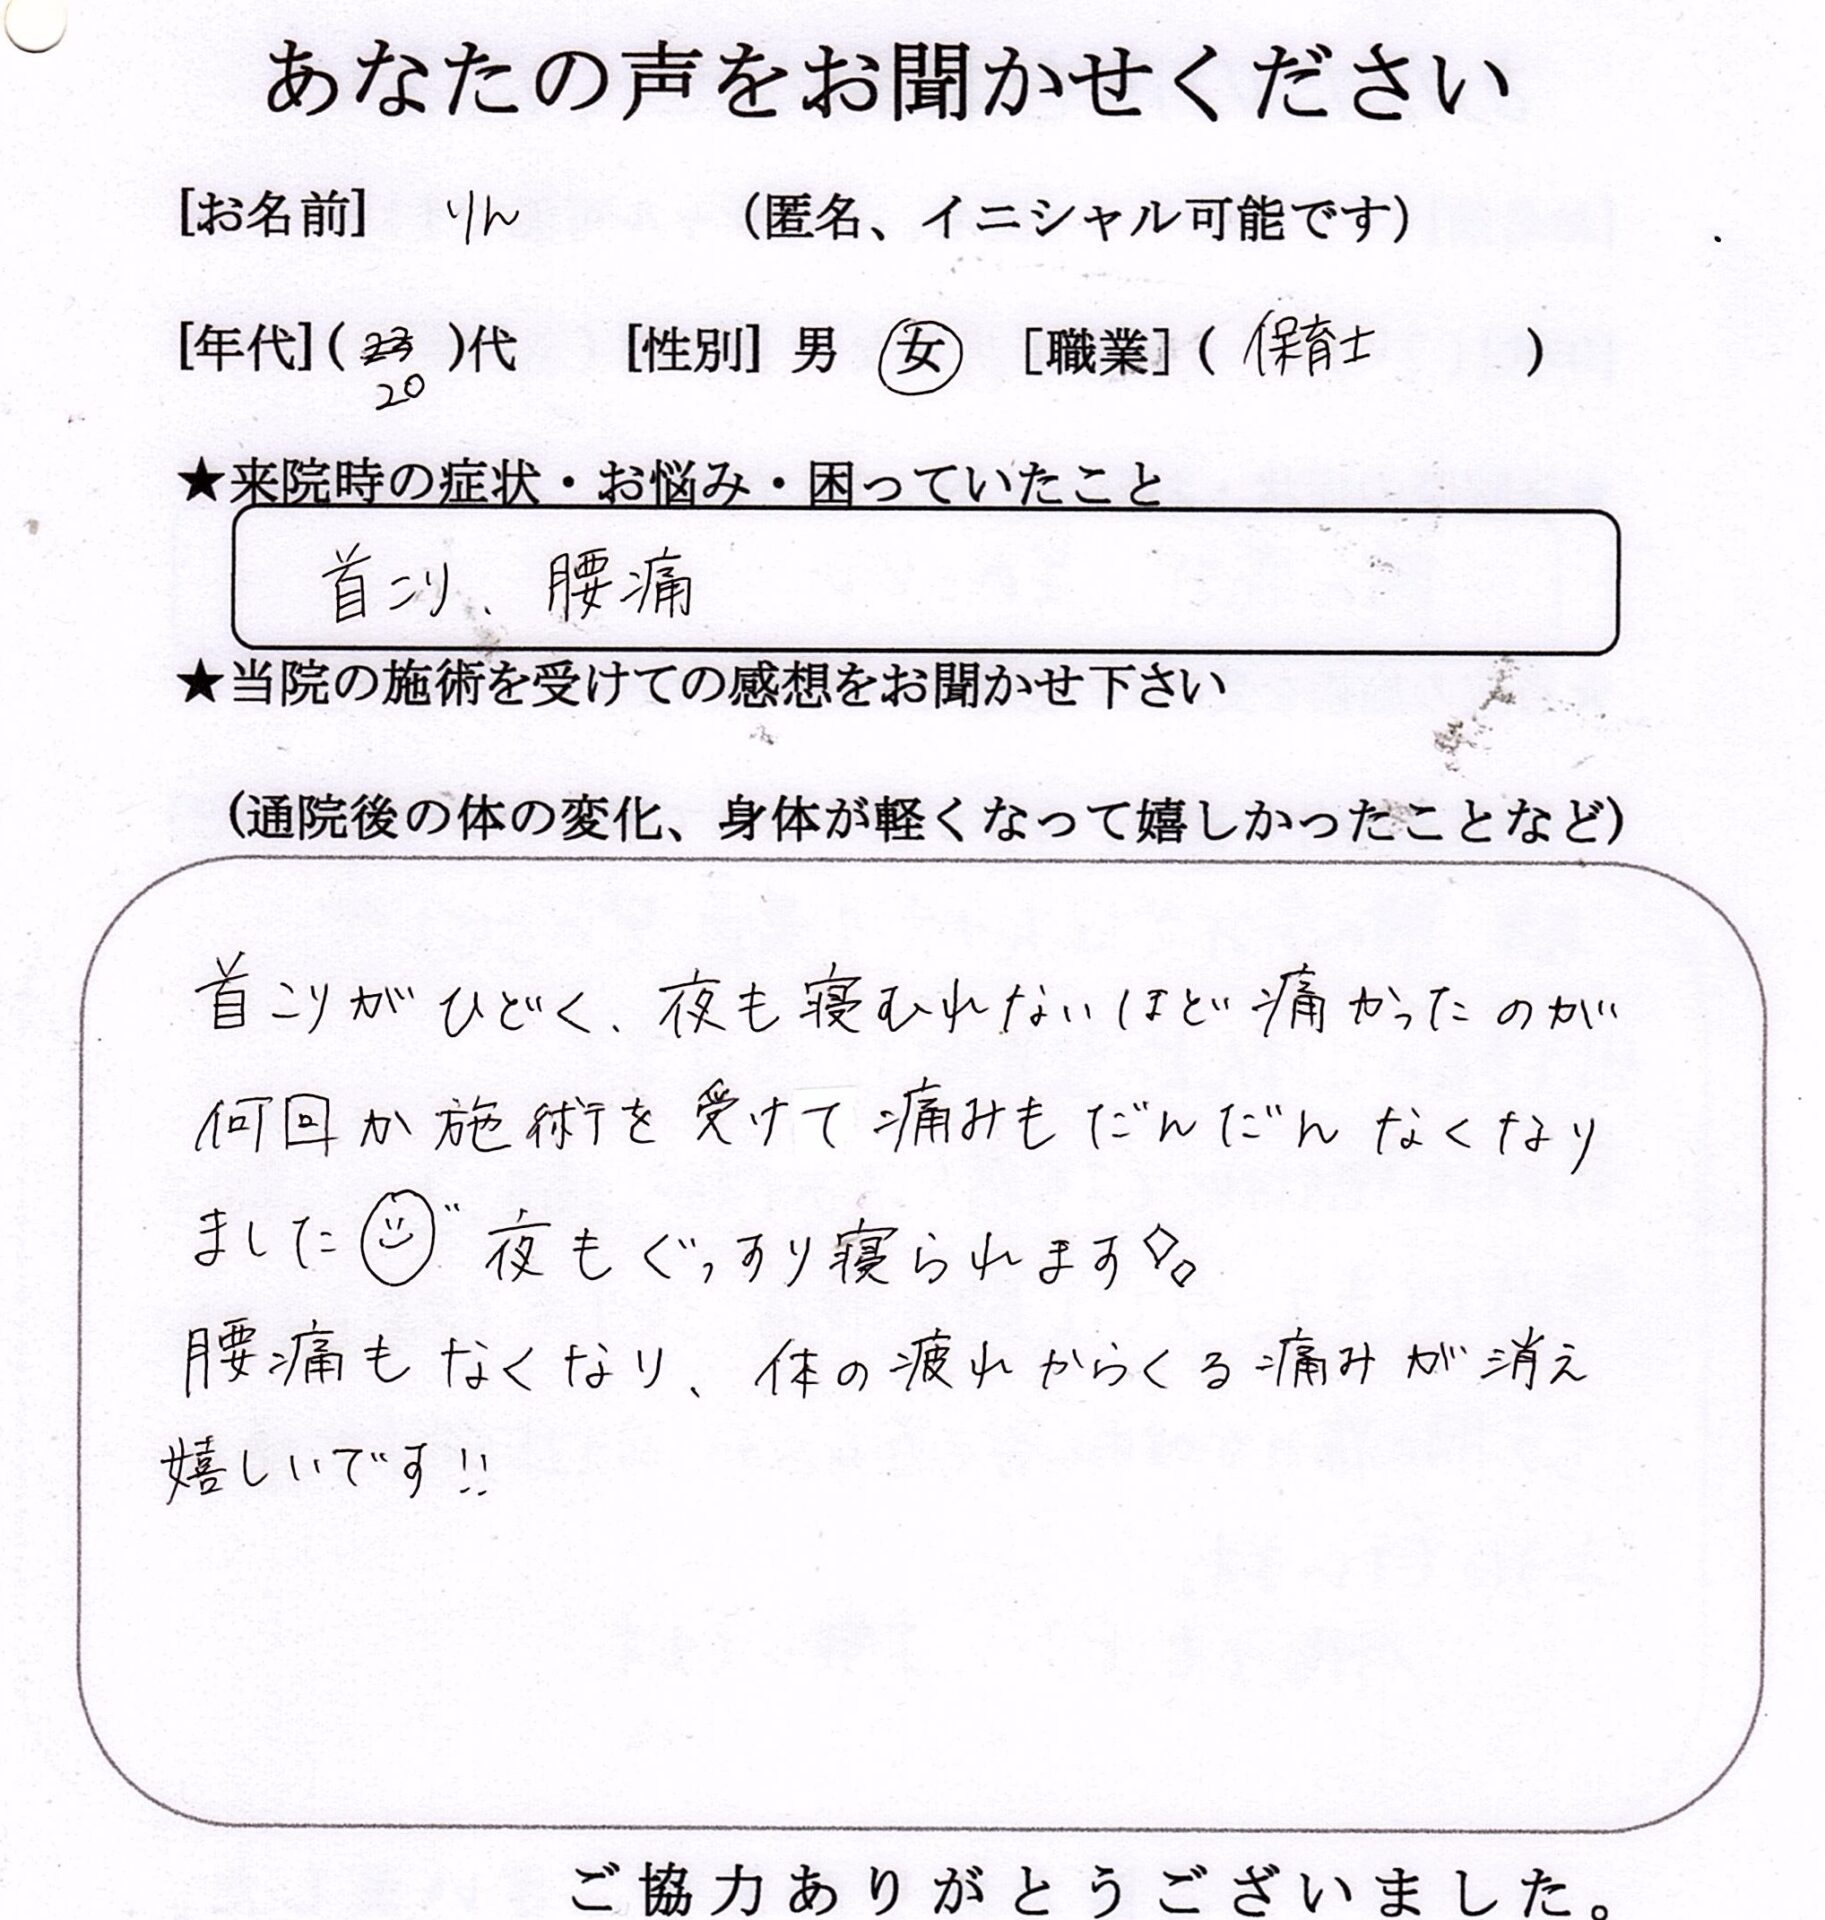 あなたの声をお聞かせください
[お名前] りん (匿名、イニシャル可能です)
[年代](23)代 [性別] 男 女 [職業](保育士)
20
★来院時の症状・お悩み・困っていたこと
首こり、腰痛
★当院の施術を受けての感想をお聞かせ下さい
(通院後の体の変化、身体が軽くなって嬉しかったことなど)
首こりがひどく、夜も寝むれないほど痛かったのが
何回か施術を受けて痛みもだんだんなくなり
ました 夜もぐっすり寝られます
腰痛もなくなり、体の疲れからくる痛みが消え
嬉しいです!!
ご協力ありがとうございました。